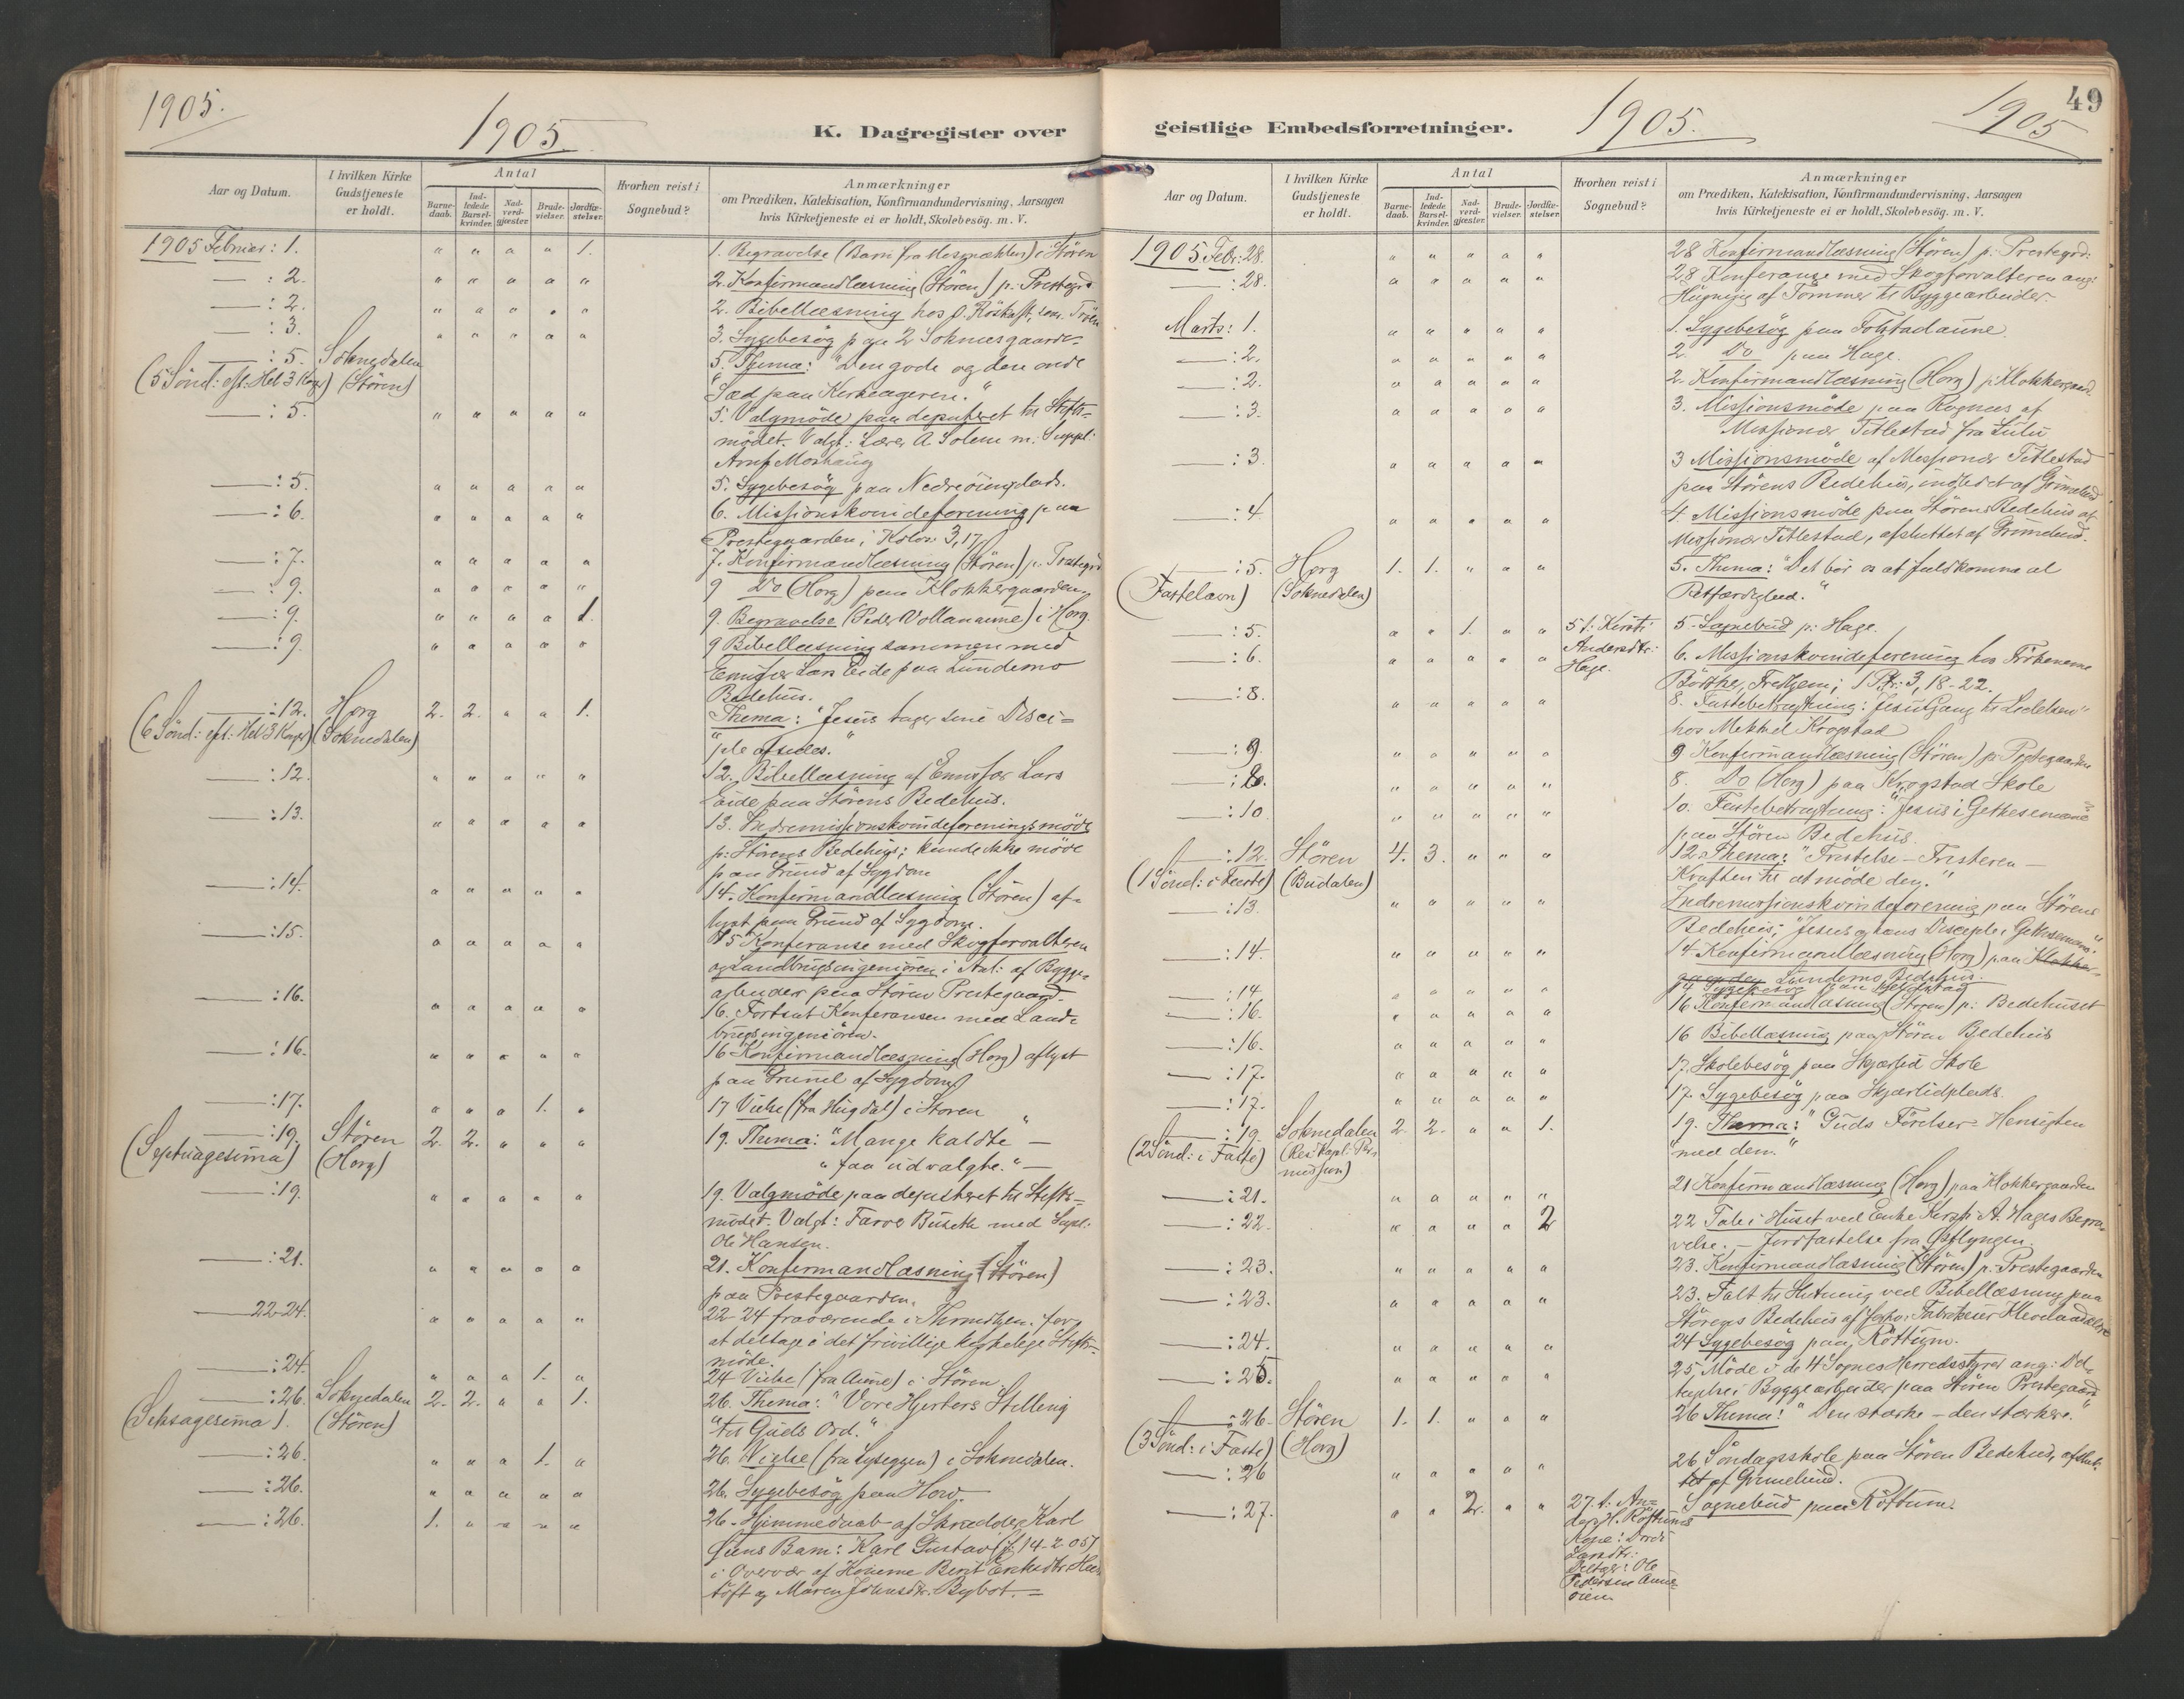 1905.
1905
K. Dagregister over
Aar og Datum.
I hvilken Kirke Gudstjeneste er holdt.
Antal
Barne-daab.
Ind-ledede Barsel-kvinder.
Nad-verd-gjæster.
Brude-vielser.
Jordfæ-stelser.
Hvorhen reist i Sognebud?
Anmærkninger
om Prædiken, Katekisation, Konfirmandundervisning, Aarsagen
hvis Kirketjeneste ei er holdt, Skolebesøg. m. V.
1905 Februar: 1. " " " " 1. 1. Begravelse (Barn fra ) i Stören
: 2. " " " " " 2. Konfirmandlæsning (Stören) p. Prestegrd
: 2. " " " " " 2. Bibellæsning hos
: 3. " " " " " 3. Sygebesøg paa 2 Soknæsgaarde
: 5. Soknedalen 5. Thema: "Den gode og den onde
(5 Sönd: eft: Hel 3 Kong) (Stören) "Sæd paa Kirkeageren."
: 5. " " " " " 5. Valgmöde paa deputeret til Stifts=
mödet. Valgt: Lærer A. Solem m. Suppl:
Arnt Moshaug
: 5. " " " " " 5. Sygebesøg paa
: 6. " " " " " 6. Missionskvindeforening paa
Prestegaarden; Kolos: 3,17.
: 7. " " " " " 7. Konfirmandlæsning (Stören) p. Prestegrd
: 9. " " " " " 9 Do (Horg) paa Klokkergaarden
: 9. " " " " 1. 9. Begravelse (Peder Vollanaune) i Horg.
: 9. " " " " " 9 Bibellæsning sammen med
Emisær Lars Eide paa Lundemo
Bedehus.
: 12. Horg 2. 2. " " 1. Thema: "Jesus tager sine Disci=
(6 Sönd: eft: Hel 3 Kong) (Soknedalen) "ple afsides."
: 12. " " " " " 12. Bibellæsning af Emisær Lars
Eide paa Störens Bedehus.
: 13. " " " " " 13. Indremissionskvindeforeningsmöde
p: Störens Bedehus; kunde ikke möde
paa Grund af Sygdom
: 14. " " " " " 14. Konfirmandlæsning (Stören) af=
lyst paa Grund af Sygdom.
: 15. " " " " " 15 Konferanse med Skogforvalteren
og Landbrugsingeniören i Anl: af Bygge=
arbeider paa Stören Prestegaard.
: 16. " " " " " 16. Fortsat Konferansen med Land=
brugsingeniören.
: 16. " " " " " 16 Konfirmandlæsning (Horg) aflyst
paa Grund af Sygdom
: 17. " " " 1. " 17 Vielse (fra Hugdal) i Stören
: 19. Stören 2. 2. " " " 19. Thema: "Mange kaldte" —
(Septuagesima) (Horg) "faa udvalgte." —
: 19. " " " " " 19. Valgmöde paa deputeret til Stifts=
mödet. Valgt: Farver Buseth med Supl:
Ole Hansen.
: 21. " " " " " 21. Konfirmandlæsning (Stören)
paa Prestegaarden.
22-24. " " " " " 22-24 fraværende i Throndhjem for
at deltage i det frivillige kirkelige Stifts=
möde.
: 24. " " " 1. " 24 Vielse (fra Aune) i Stören.
: 26. Soknedalen 2. 2. " " 1. 26. Thema: "Vore Hjerters Stilling
(Seksagesima). (Stören) "til Guds Ord."
: 26. " " " 1. " 26. Vielse (fra ) i Soknedalen.
: 26. " " " " " 26. Sygebesøg paa Hov.
: 26. 1. " " " " 26. Hjemmedaab af Skrædder Karl
Barn: Karl Gustav (f. 14-2-05)
i Overvær af Konerne Berit
og Maren Johnsdtr. Bybot. =
49
geistlige Embedsforretninger.
1905.
1905
Aar og Datum.
I hvilken Kirke Gudstjeneste er holdt.
Antal
Barne-daab.
Ind-ledede Barsel-kvinder.
Nad-verd-gjæster.
Brude-vielser.
Jordfæ-stelser.
Hvorhen reist i Sognebud?
Anmærkninger
om Prædiken, Katekisation, Konfirmandundervisning, Aarsagen
hvis Kirketjeneste ei er holdt, Skolebesøg. m. V.
1905 Febr: 28. " " " " " 28 Konfirmandlæsning (Stören) p: Prestegrd:
: 28. " " " " " 28 Konferanse med Skogforvalteren ang:
Hugning af Tömmer til Byggearbeider.
Marts: 1. " " " " " 1. Sygebesøg paa Folstadaune
: 2. " " " " " 2. Do paa Hage.
: 2. " " " " " 2. Konfirmandlæsning (Horg) p: Klokkergaard.
: 3. " " " " " 3. Missionsmöde paa Rognes af
Missionær Titlestad fra Sulu
: 3. " " " " " 3 Missionsmöde af Missionær Titlestad
paa Störens Bedehus, indledet af Grimelund
: 4. " " " " " 4. Missionsmöde paa Störens Bedehus af
Missionær Titlestad, afsluttet af Grimelund.
: 5. Horg 1. 1. " " " 5. Thema: "Det bör os at fuldkomme al
(Fastelavn) (Soknedalen) Retfærdighed."
: 5. " " 1. " " 5 t. Kirsti Andersdtr: Hage. 5. Sognebud p: Hage.
: 6. " " " " " 6. Missionskvindeforening hos Frökenerne
Bötke, Fredhjem; 1 Ptr: 3, 18-22.
: 8. " " " " " 8. Fastebetragtning: "Jesu Gang til Lidelsen"
hos Mekkel Krogstad
: 9. " " " " " 9 Konfirmandlæsning (Stören) p: Prestegaarden
: 8. " " " " " 8. Do (Horg) paa Krogstad Skole
: 10. " " " " " 10. Fastebetragtning: "Jesus i Gethesemane"
paa Stören Bedehus.
: 12. Stören 4. 3. " " " 12. Thema: "Fristelse – Fristeren –
(1 Sönd: i Faste) (Budalen) Kraften til at möde den."
: 13. " " " " " Indremissionskvindeforening paa Störens
Bedehus; "Jesus og hans Disciple i Gethsemane."
: 14. " " " " " 14 Konfirmandlæsning (Horg) paa Klokker=
gaarden Lundemo Bedehus.
: 14. " " " " " 14 Sygebesøg paa
: 16. " " " " " 16 Konfirmandlæsning (Stören) p: Bedehuset
: 16. " " " " " 16 Bibellæsning paa Stören Bedehus
: 17. " " " " " 17. Skolebesøg paa Skjærli Skole
: 17. " " " " " 17. Sygebesøg paa Skjærlidplads.
: 19. Soknedalen 2. 2. " " 1. 19. Thema: "Guds Förelser – Hensigten
(2 Sönd: i Faste) (Res: Kapl: ) "med dem."
: 21. " " " " " 21 Konfirmandlæsning (Horg) paa Klokkergaarden
: 22. " " " " 2 22 Tale i Huset ved Enke Kirsti A. Hages Begra=
velse. – Jordfæstelse fra
: 23. " " " " " 23. Konfirmandlæsning (Stören) p: Prestegaarden
: 23. " " " " " 23. Talt til Slutning ved Bibellæsning paa
Störens Bedehus af
: 24. " " " " " 24 Sygebesøg paa Röttum.
: 25. " " " " " 25. Möde i de 4 Sognes Herredsstyrer ang: Del=
tagelse i Byggearbeider paa Stören Prestegaard
: 26. Stören 1. 1. " " " 26 Thema: "Den stærke – den stærkere."
(3 Sönd: i Faste) (Horg)
: 26 " " " " " 26 Söndagsskole paa Stören Bedehus, afslut=
tet af Grimelund.
: 27. " " 2. " " 27. t. An= Sognebud paa Röttum.
Röttums
Kone: Dordi
Larsdtr:
Deltager: Ole
Pedersen Aune
öien